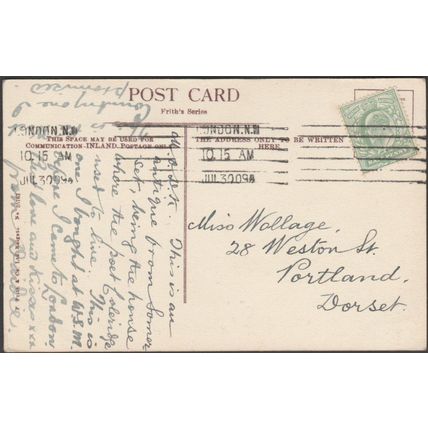 POST CARD
Frith's Series
LONDON.N.W
10.15 AM
JUL 30 09
LONDON.N.W
10.15 AM
JUL 30 09
THIS SPACE MAY BE USED FOR
COMMUNICATION-INLAND POSTAGE ONLY
THE ADDRESS ONLY TO BE WRITTEN
HERE.
This is an
antique from Somer
set, being the house
where the poet Coleridge
used to live. This is
one I bought at W.S.M.
I came to London
love and kisses xxx
from
This is
country one I
promised
Miss Wollage,
28 Weston St.
Portland,
Dorset.